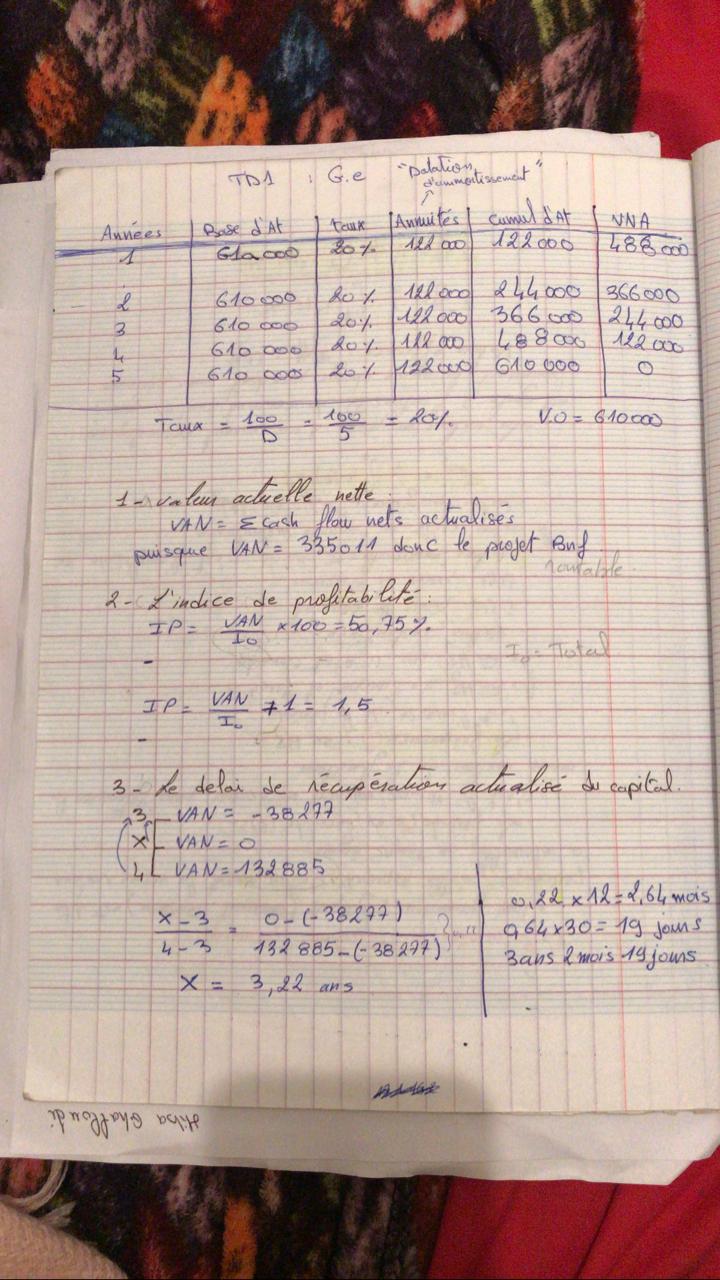 TD1 : G.e "Dotation
d'ammortissement"
Années Base d'At taux Annuités Cumul d'At VNA
1 610 000 20% 122 000 122 000 488 000
2 610 000 20% 122 000 244 000 366 000
3 610 000 20% 122 000 366 000 244 000
4 610 000 20% 122 000 488 000 122 000
5 610 000 20% 122 000 610 000 0
Taux = 100/D = 100/5 = 20% V.O = 610 000
1- valeur actuelle nette :
VAN = Σ cash flow nets actualisés
puisque VAN = 335 011 donc le projet Bnf
rentable.
2- L'indice de profitabilité :
IP = VAN/I₀ × 100 = 50,75%
I₀ = Total
-
IP = VAN/I₀ + 1 = 1,5
-
3- Le delai de récupération actualisé du capital.
3 VAN = -38277
X VAN = 0
4 VAN = 132 885
X-3/4-3 = 0-(-38277)/132 885-(-38277)
X = 3,22 ans
0,22 × 12 = 2,64 mois
0,64 × 30 = 19 jours
3 ans 2 mois 19 jours
Hiba